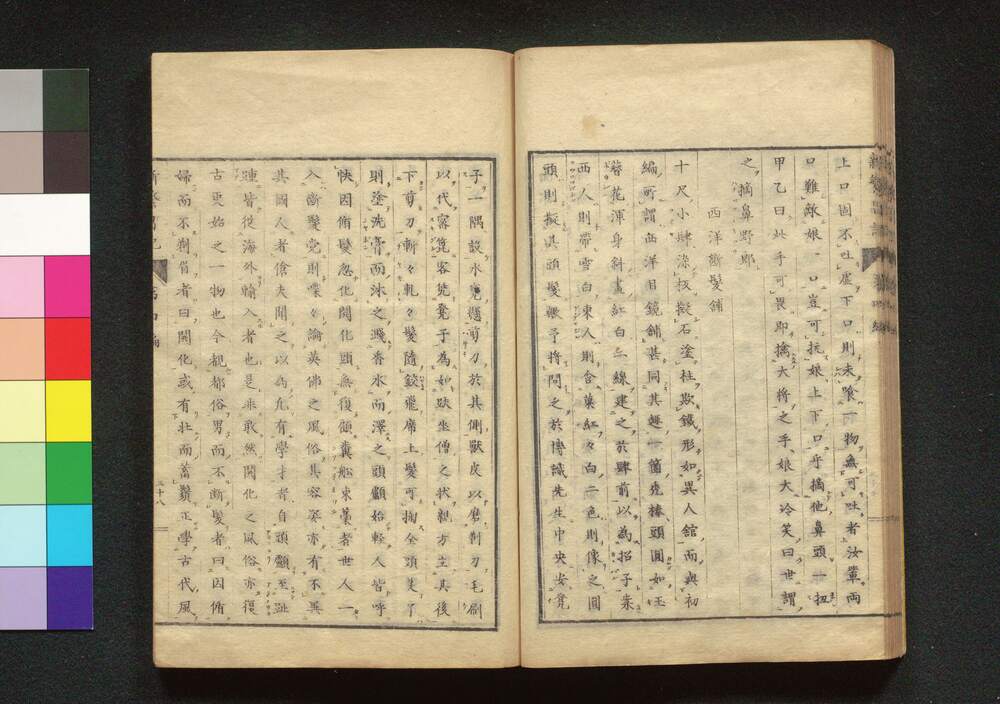 上口固不吐虛下口則未喰一物無可吐者汝輩兩
口難敵娘一口豈可抗娘上下口乎擒他鼻頭一扭
甲乙曰此手可畏即擒大將之手娘大冷笑曰世謂
之摘鼻野郎
西洋斷髮舖
十尺小肆漆板擬石塗柱欺鐵形如異人館而與初
編所謂西洋目鏡舖甚同其趣一箇虎棒頭圓如玉
蕣花渾身斜畫紅白二線建之於肆前以為招子來
西人則帶雪白東人則含藥紅々白二色則像之圓
頭則擬其頭髮歟予將問之於博識先生中央安凳
子一隅設水甕題剪刀於其側獸皮以磨剃刀毛刷
以代寄箆客凭凳子為如趺坐僧之狀親方立其後
下剪刀斬々軋々髮隨鋏飛席上髮可掬全頭芟了
則塗洗膏而沐之濺香水而澤之頭顱始輕人皆呼
快因脩髮忽化開化頭無復傾糞船束藁者世人一
入斷髮黨則喋々論英佛之風俗其容姿亦有不異
其國人者傖夫聞之以為尤有學才者自頭顱至趾
踵皆從海外輸入者也是非敢然開化之風俗亦復
古更始之一物也今觀都俗男而不斷髮者曰因脩
婦而不剃眉者曰開化或有壯而蓄鬚正學古代風
三十八